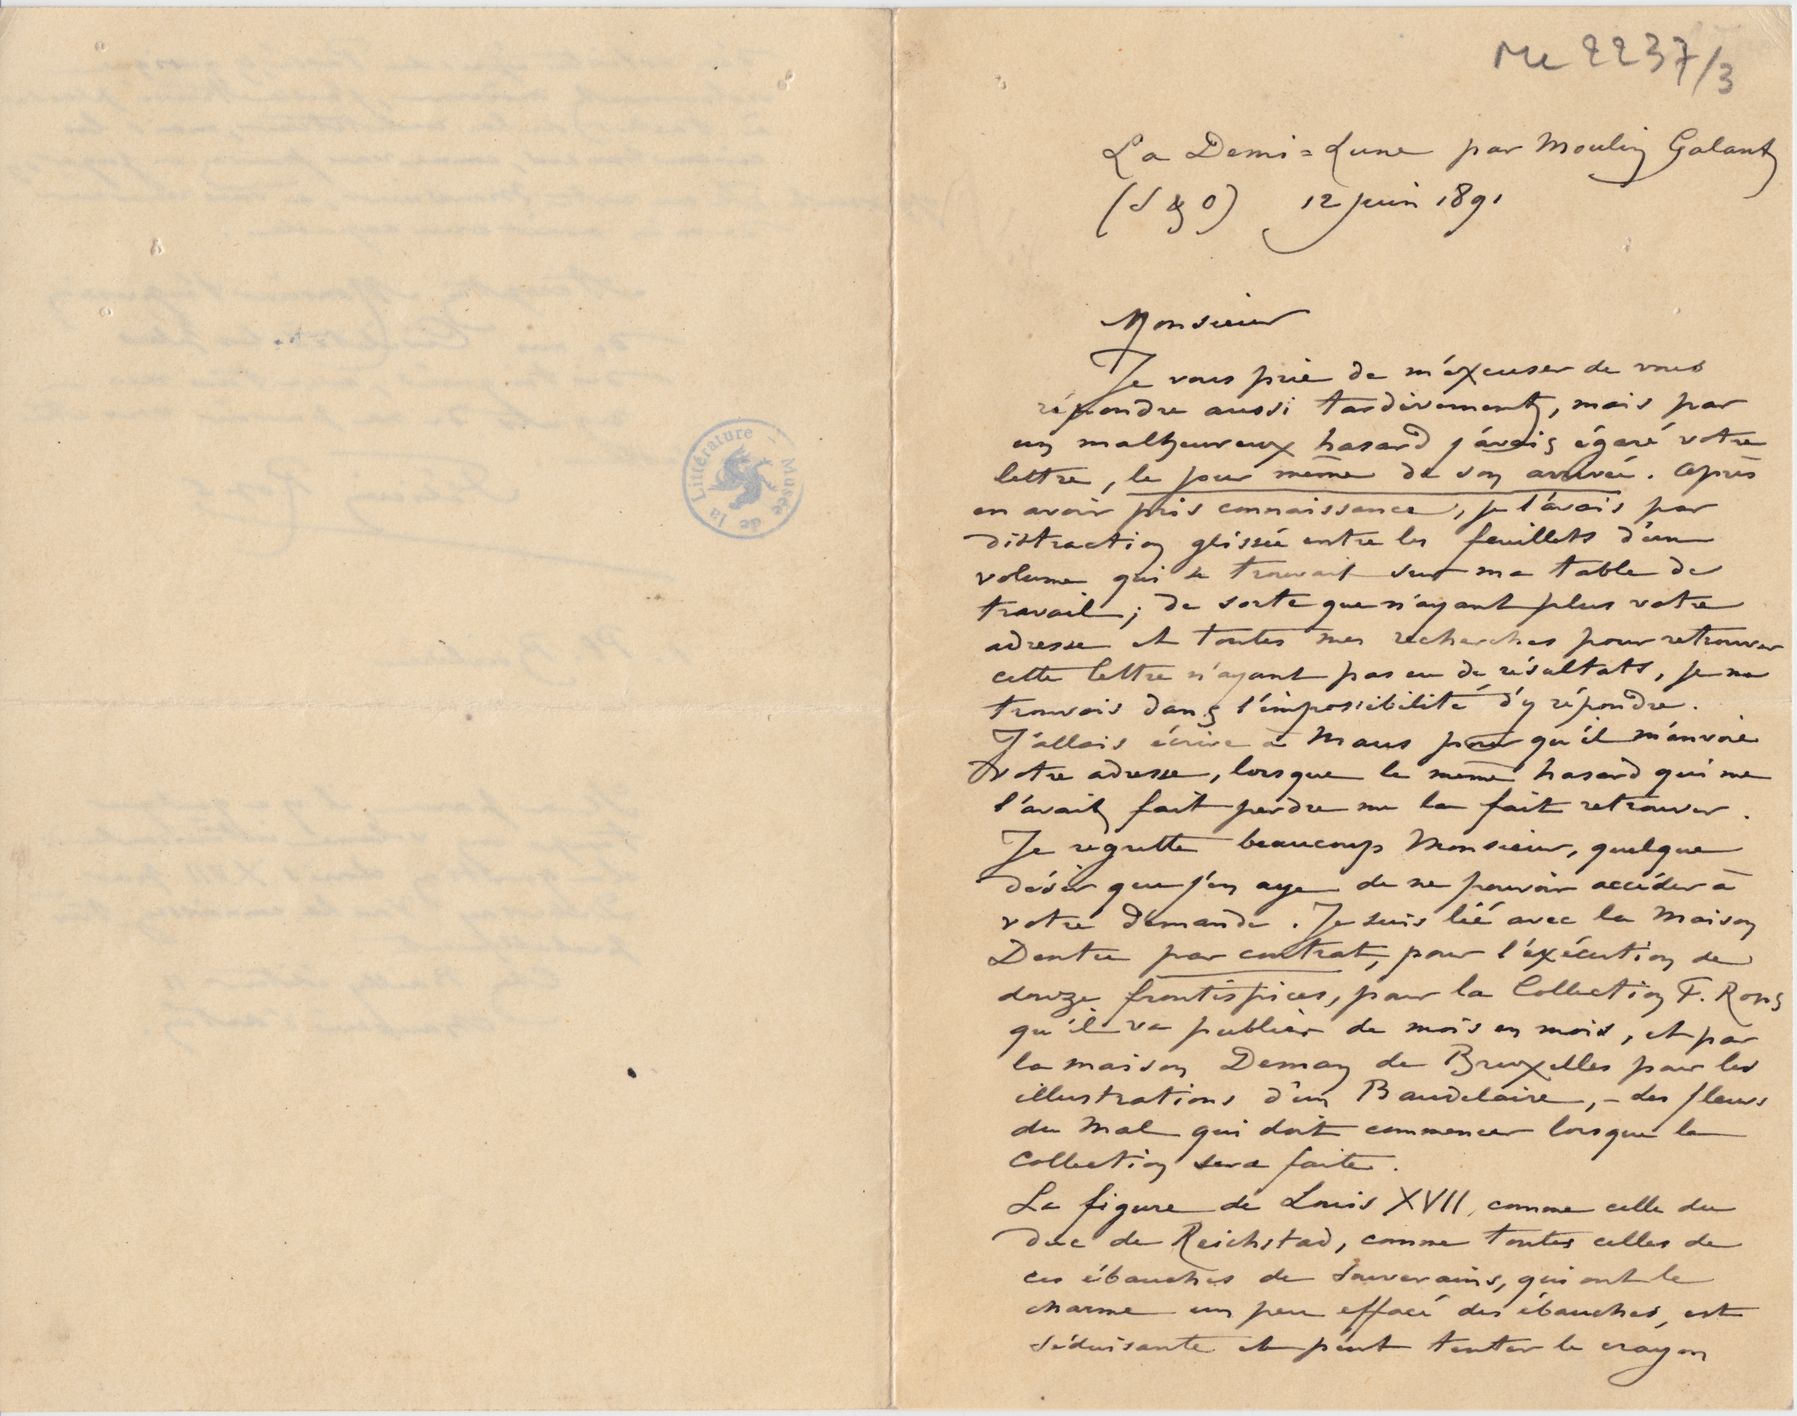 ML 2237/3
La Demi=Lune par Moulin Galant
(S & O) 12 juin 1891
Monsieur
Je vous prie de m'éxcuser de vous
répondre aussi tardivement, mais par
un malheureux hasard j'avais égaré votre
lettre, le jour même de son arrivée. Après
en avoir pris connaissance, je l'avais par
distraction glissée entre les feuillets d'un
volume qui se trouvait sur ma table de
travail; de sorte que n'ayant plus votre
adresse et toutes mes recherches pour retrouver
cette lettre n'ayant pas eu de résultats, je me
trouvais dans l'impossibilité d'y répondre.
J'allais écrire à Maus pour qu'il m'envoie
votre adresse, lorsque le même hasard qui me
l'avait fait perdre me la fait retrouver.
Je regrette beaucoup Monsieur, quelque
désir que j'en aye de ne pouvoir accéder à
votre demande. Je suis lié avec la Maison
Dentu par contrat, pour l'éxécution de
douze frontispices, pour la Collection F. Rops
qu'il va publier de mois en mois, et par
la maison Deman de Bruxelles pour les
illustrations d'un Baudelaire, - des fleurs
du Mal qui doit commencer lorsque la
Collection sera faite.
La figure de Louis XVII, comme celle du
duc de Reichstad, comme toutes celles de
ces ébauches de Souverains, qui ont le
charme un peu effacé des ébauches, est
séduisante et peut tenter le crayon
Musée de la Littérature